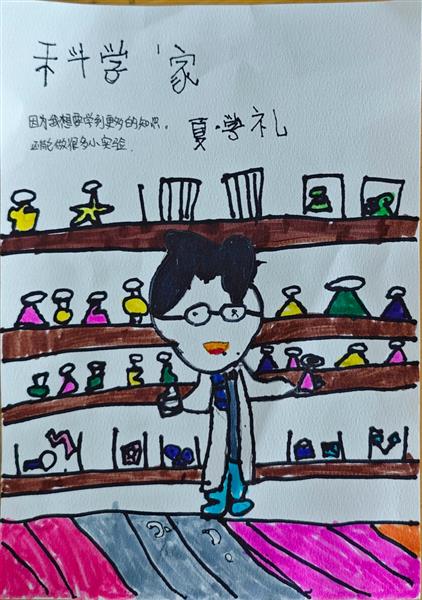 科学家
因为我想要学到更多的知识，
还能做很多小实验.
夏·学礼